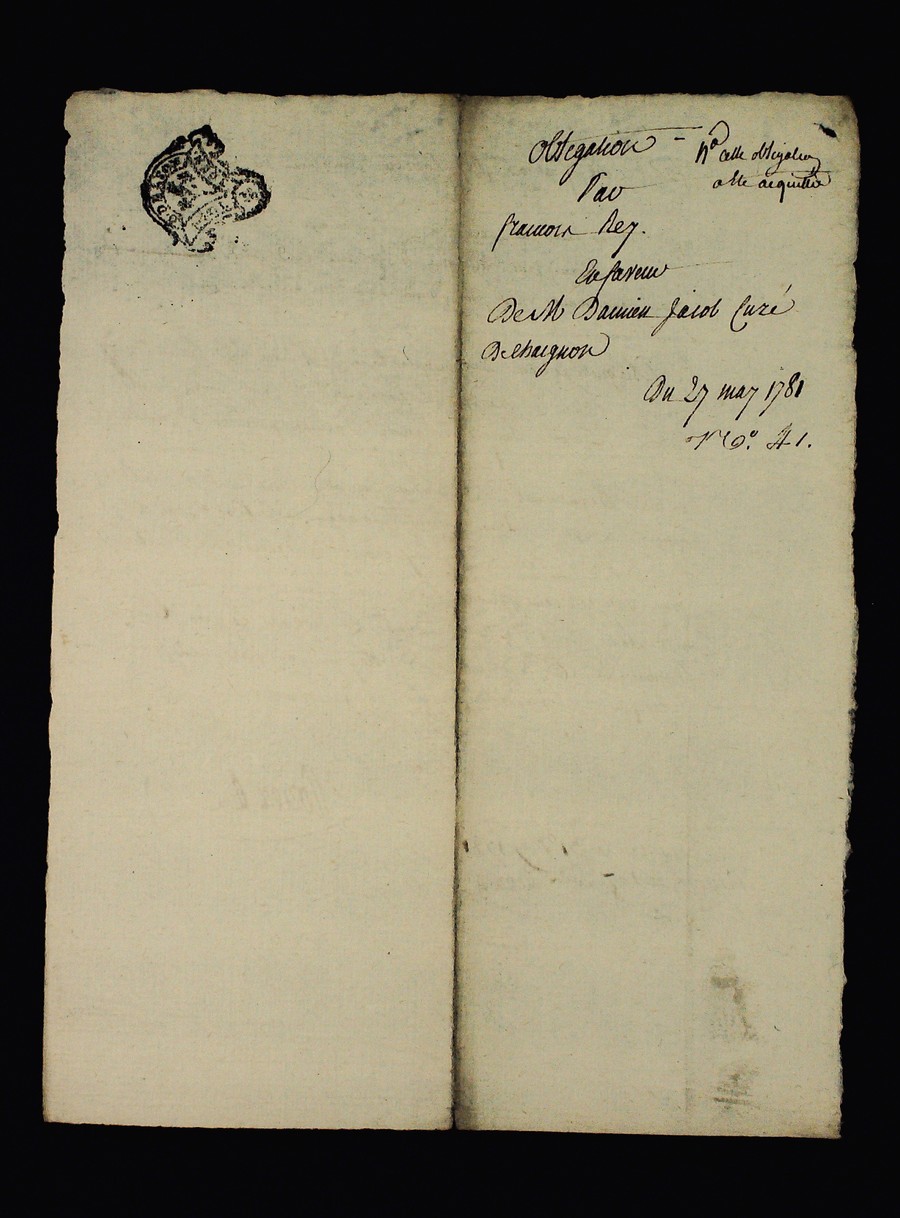 obligation -
Par
francois Rey.
En faveur
De M Damien Jacob Curé
De Chaignon
Du 27 may 1781
N° 41.
N^a cette obligation
a été acquittée